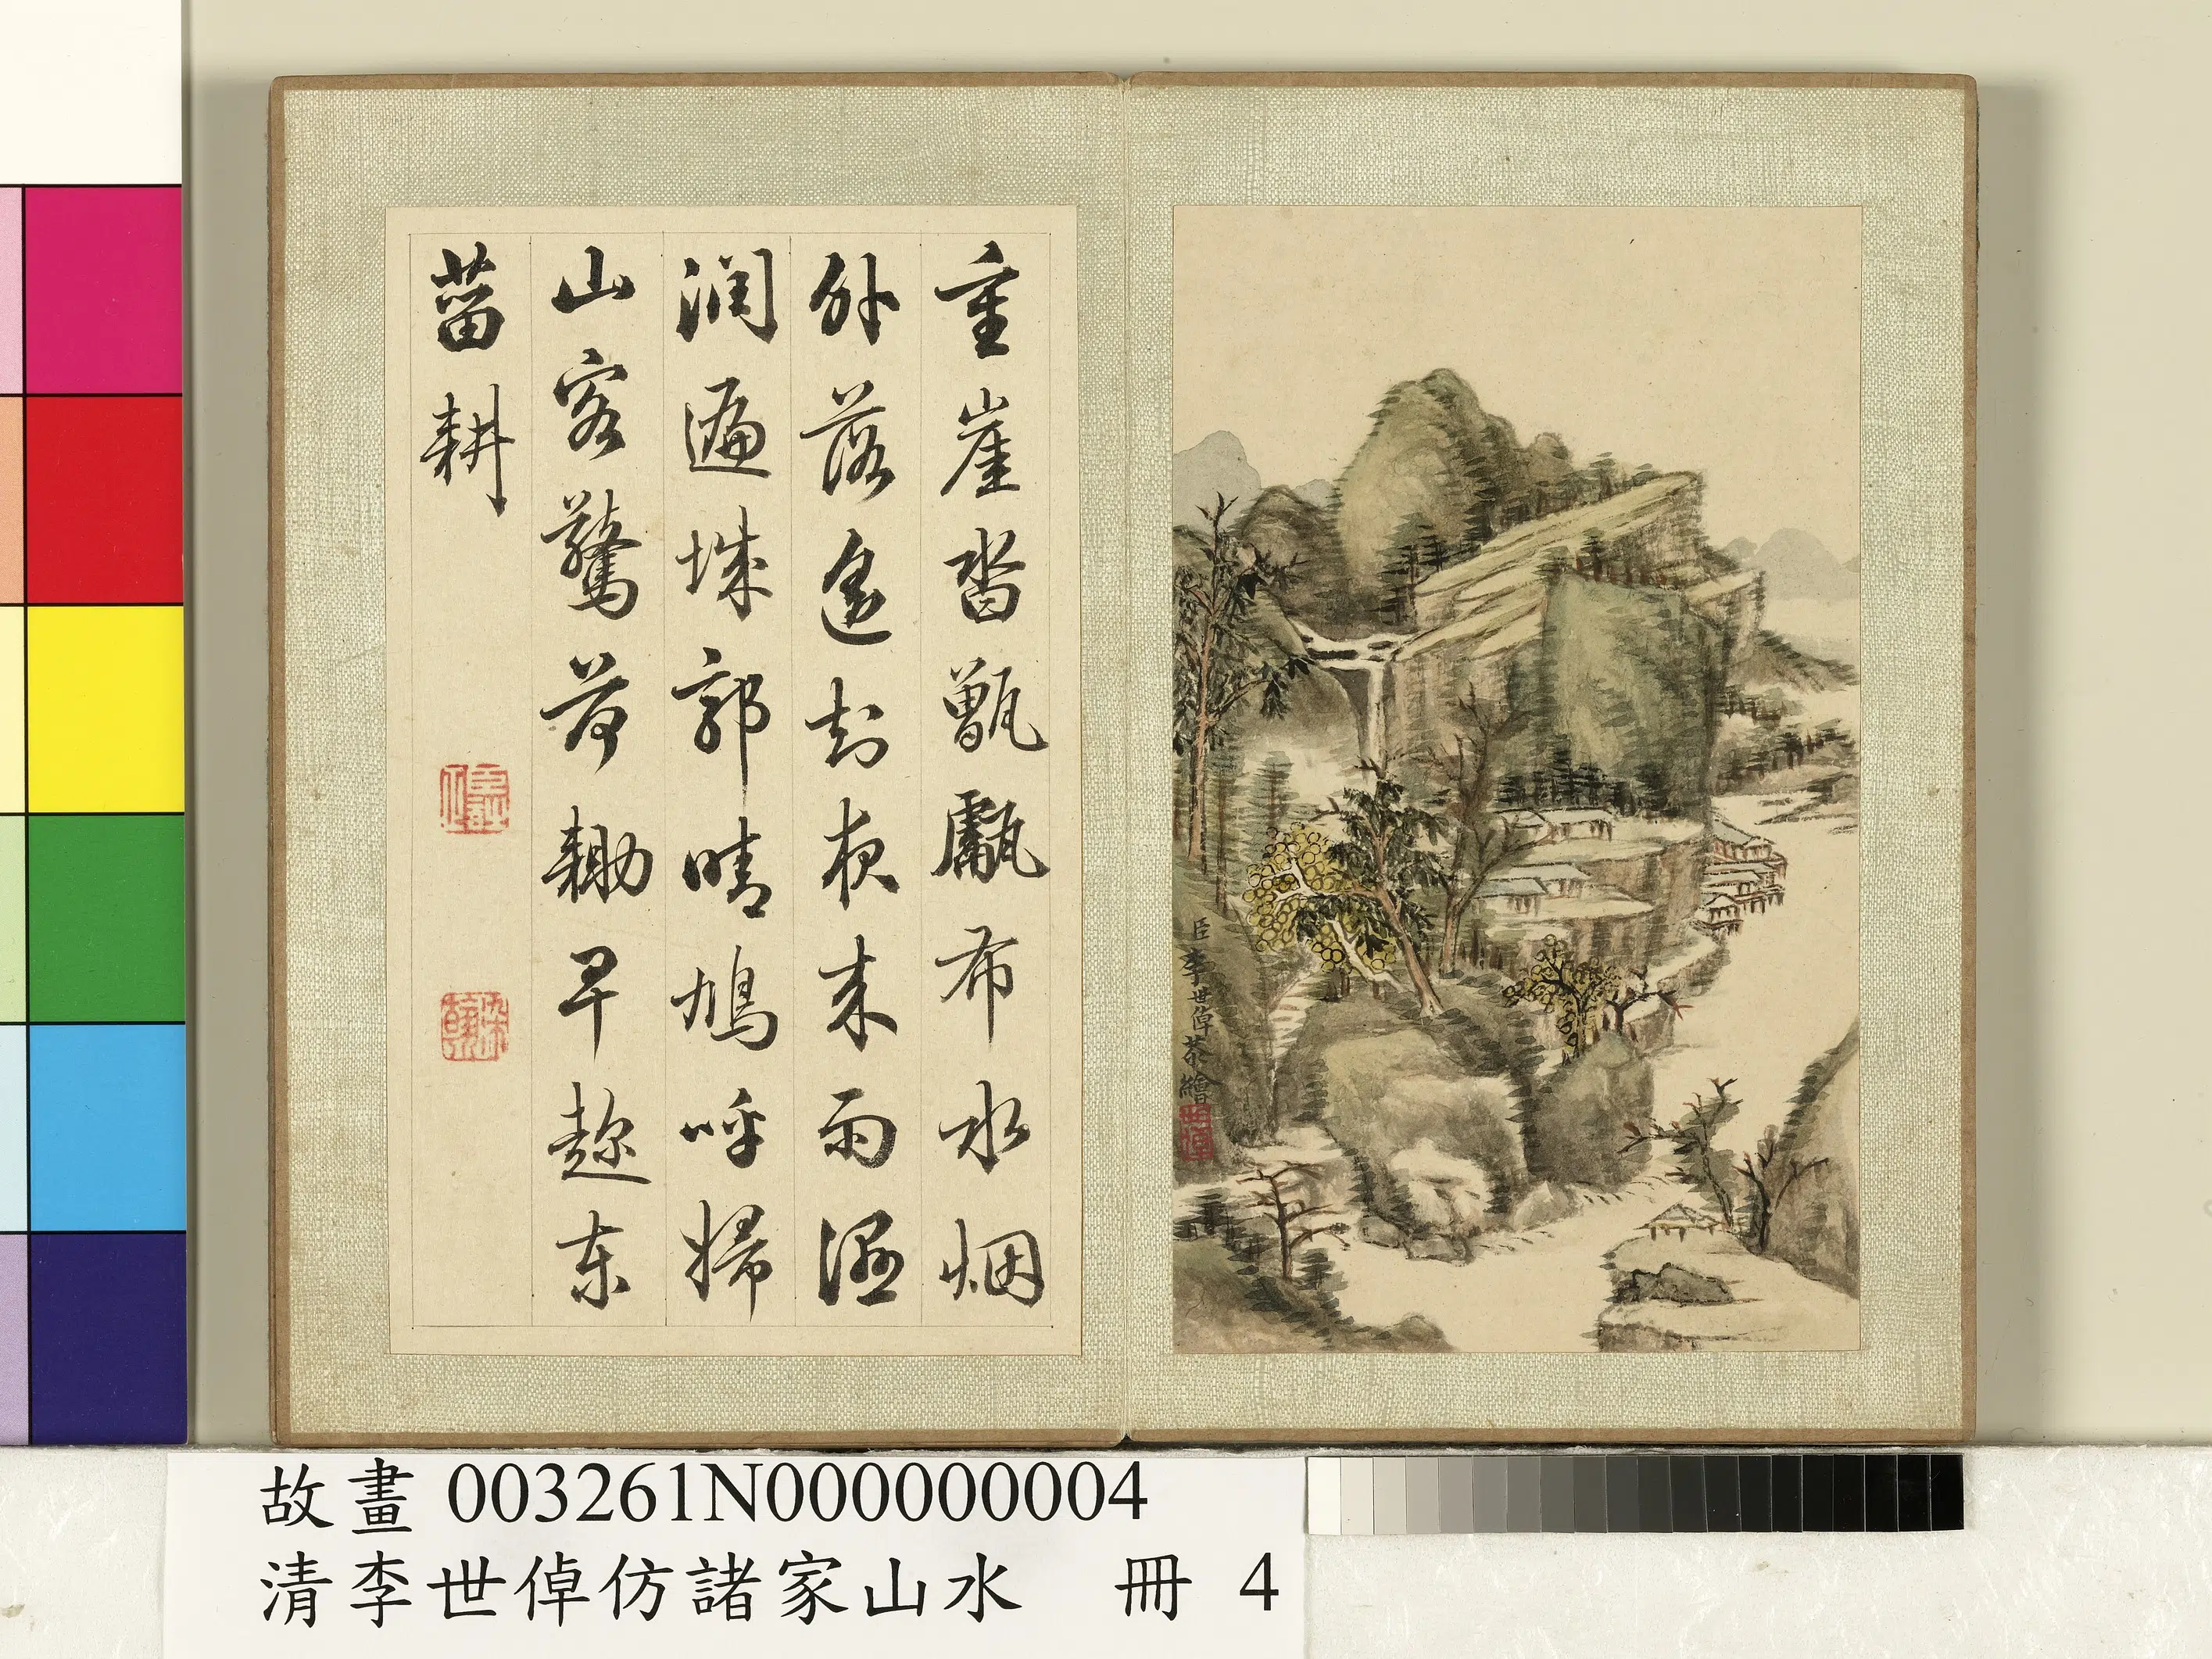 重崖沓甑甗布水烟
外落遥知夜来雨湿
润遍城郭晴鳩呼婦
山客驚荷耡早趂东
菑耕
臣李世倬恭繪
世倬
故畫 003261N000000004
清李世倬仿諸家山水 冊 4